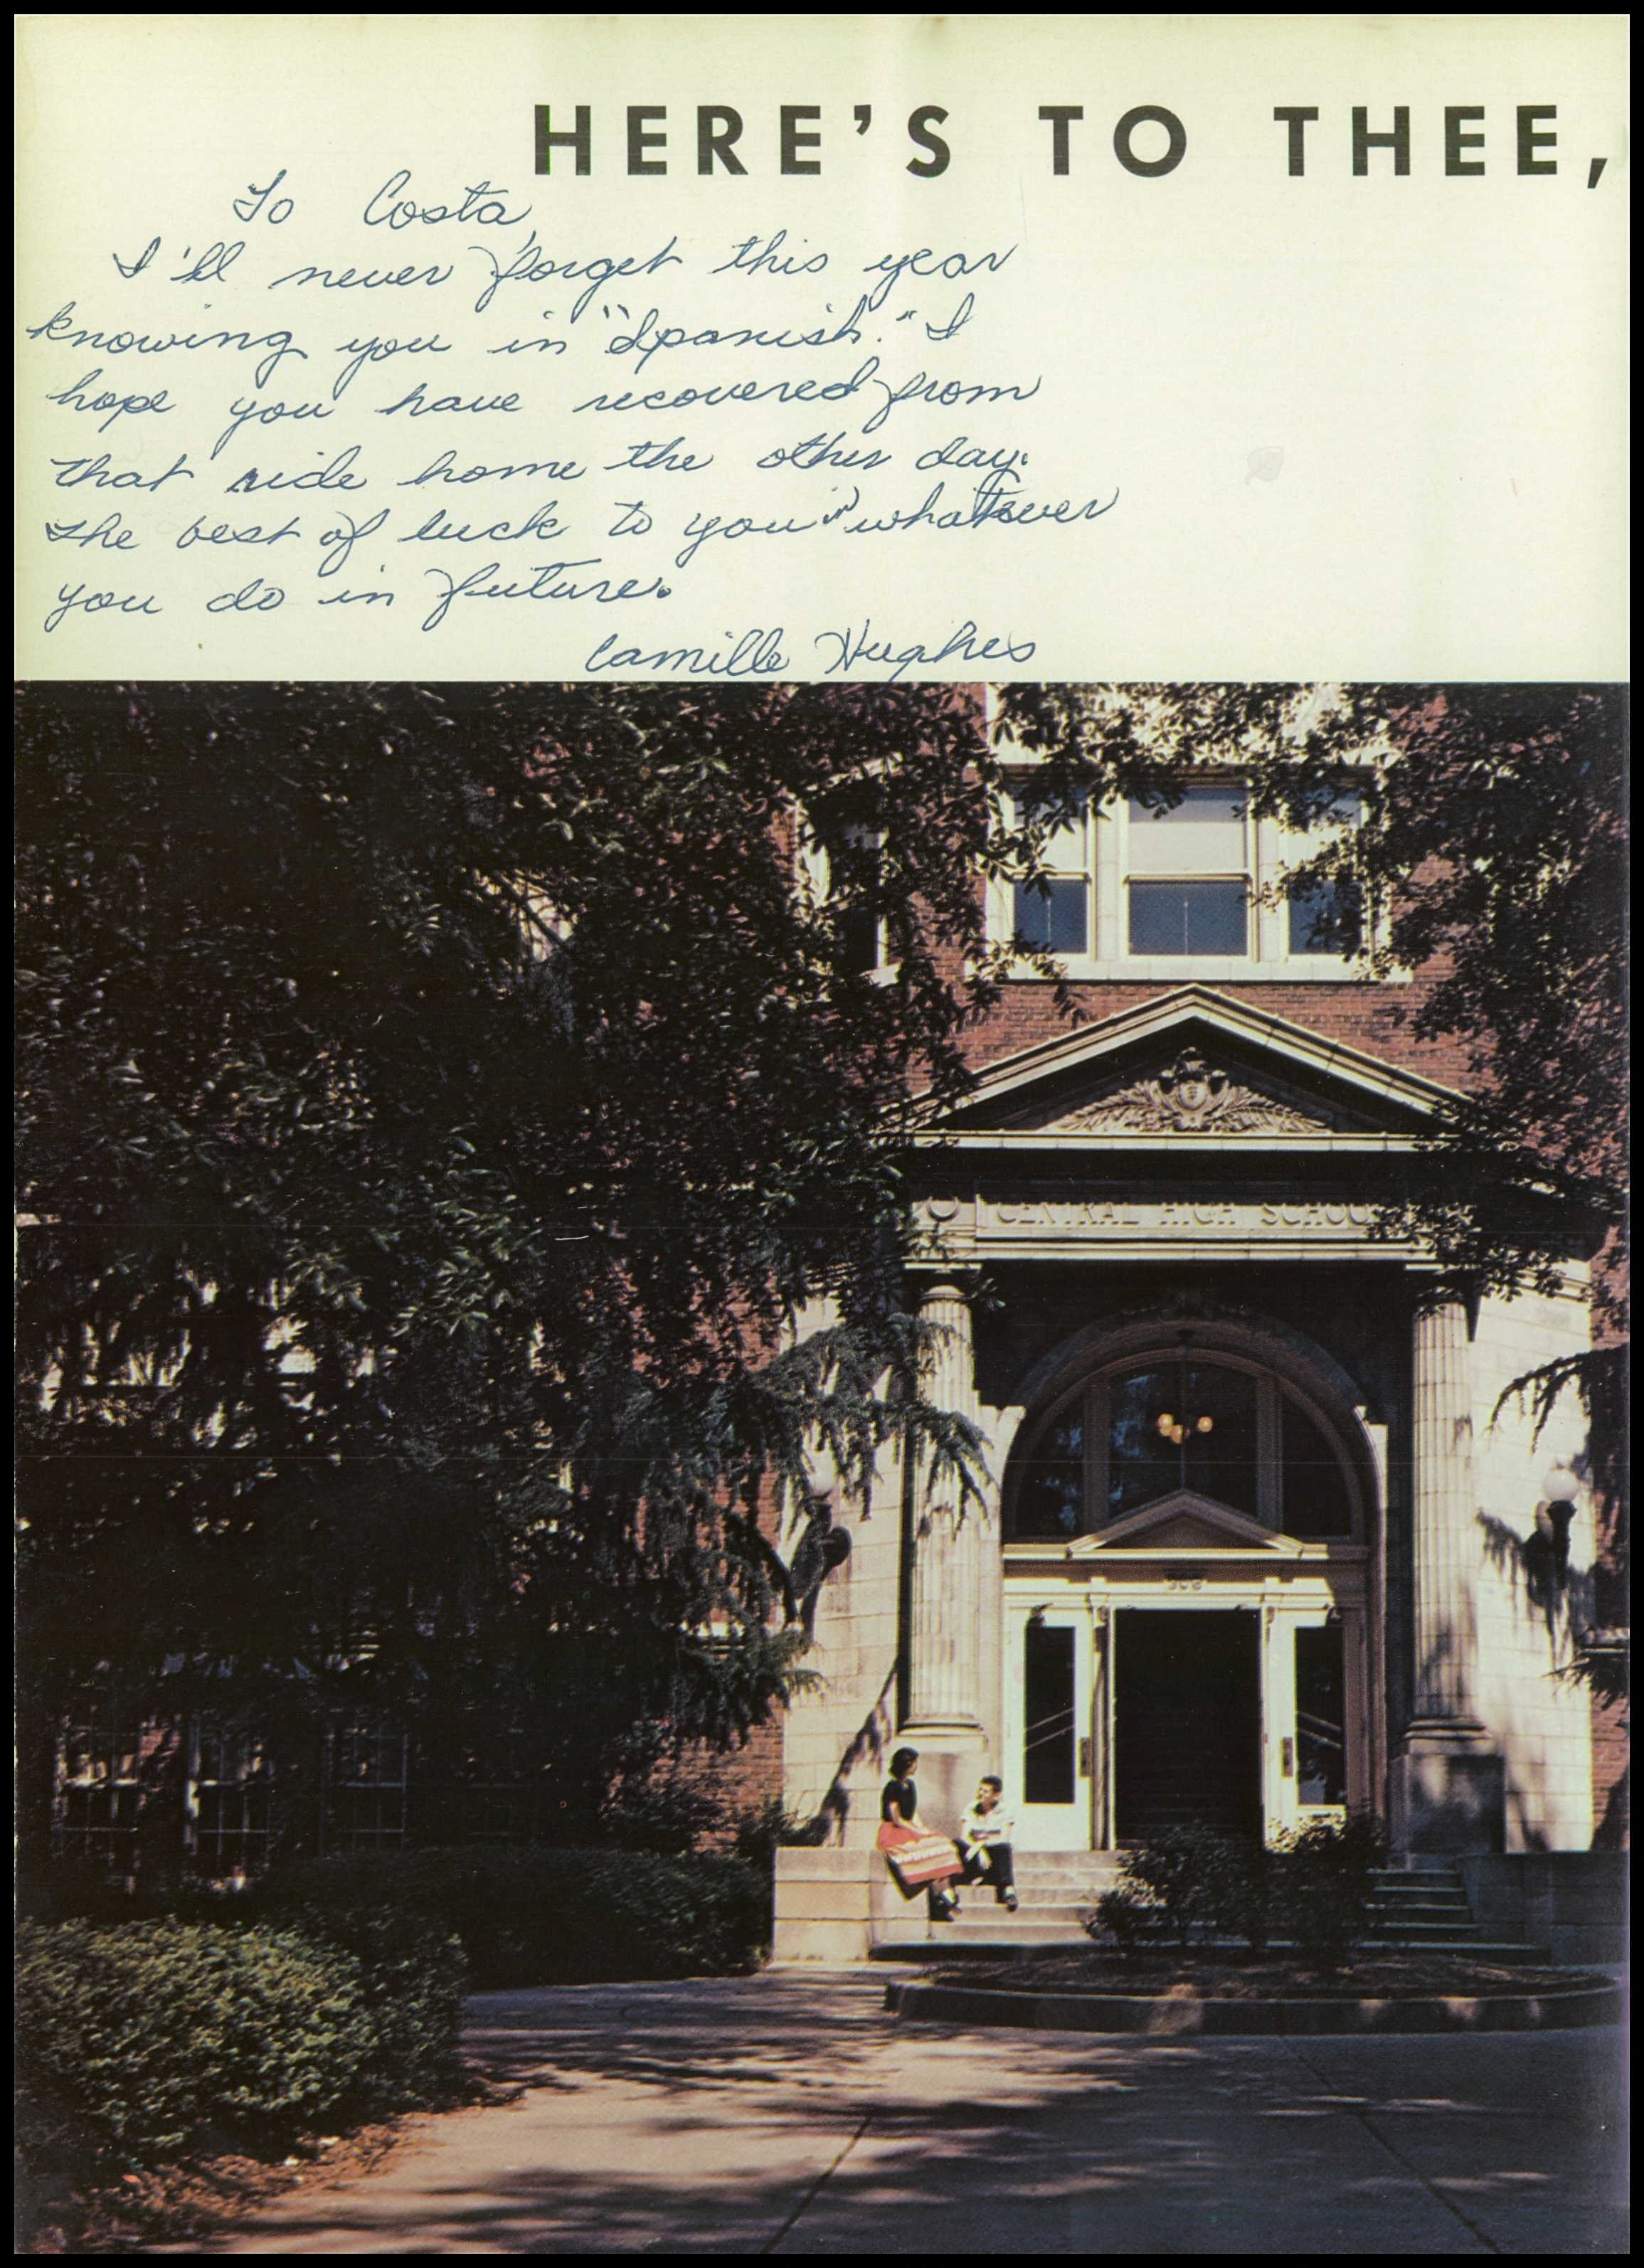 HERE'S TO THEE,
To Costa,
I'll never forget this year
knowing you in "Spanish." I
hope you have recovered from
that ride home the other day.
The best of luck to you in whatever
you do in future.
Camille Hughes
CENTRAL HIGH SCHOOL